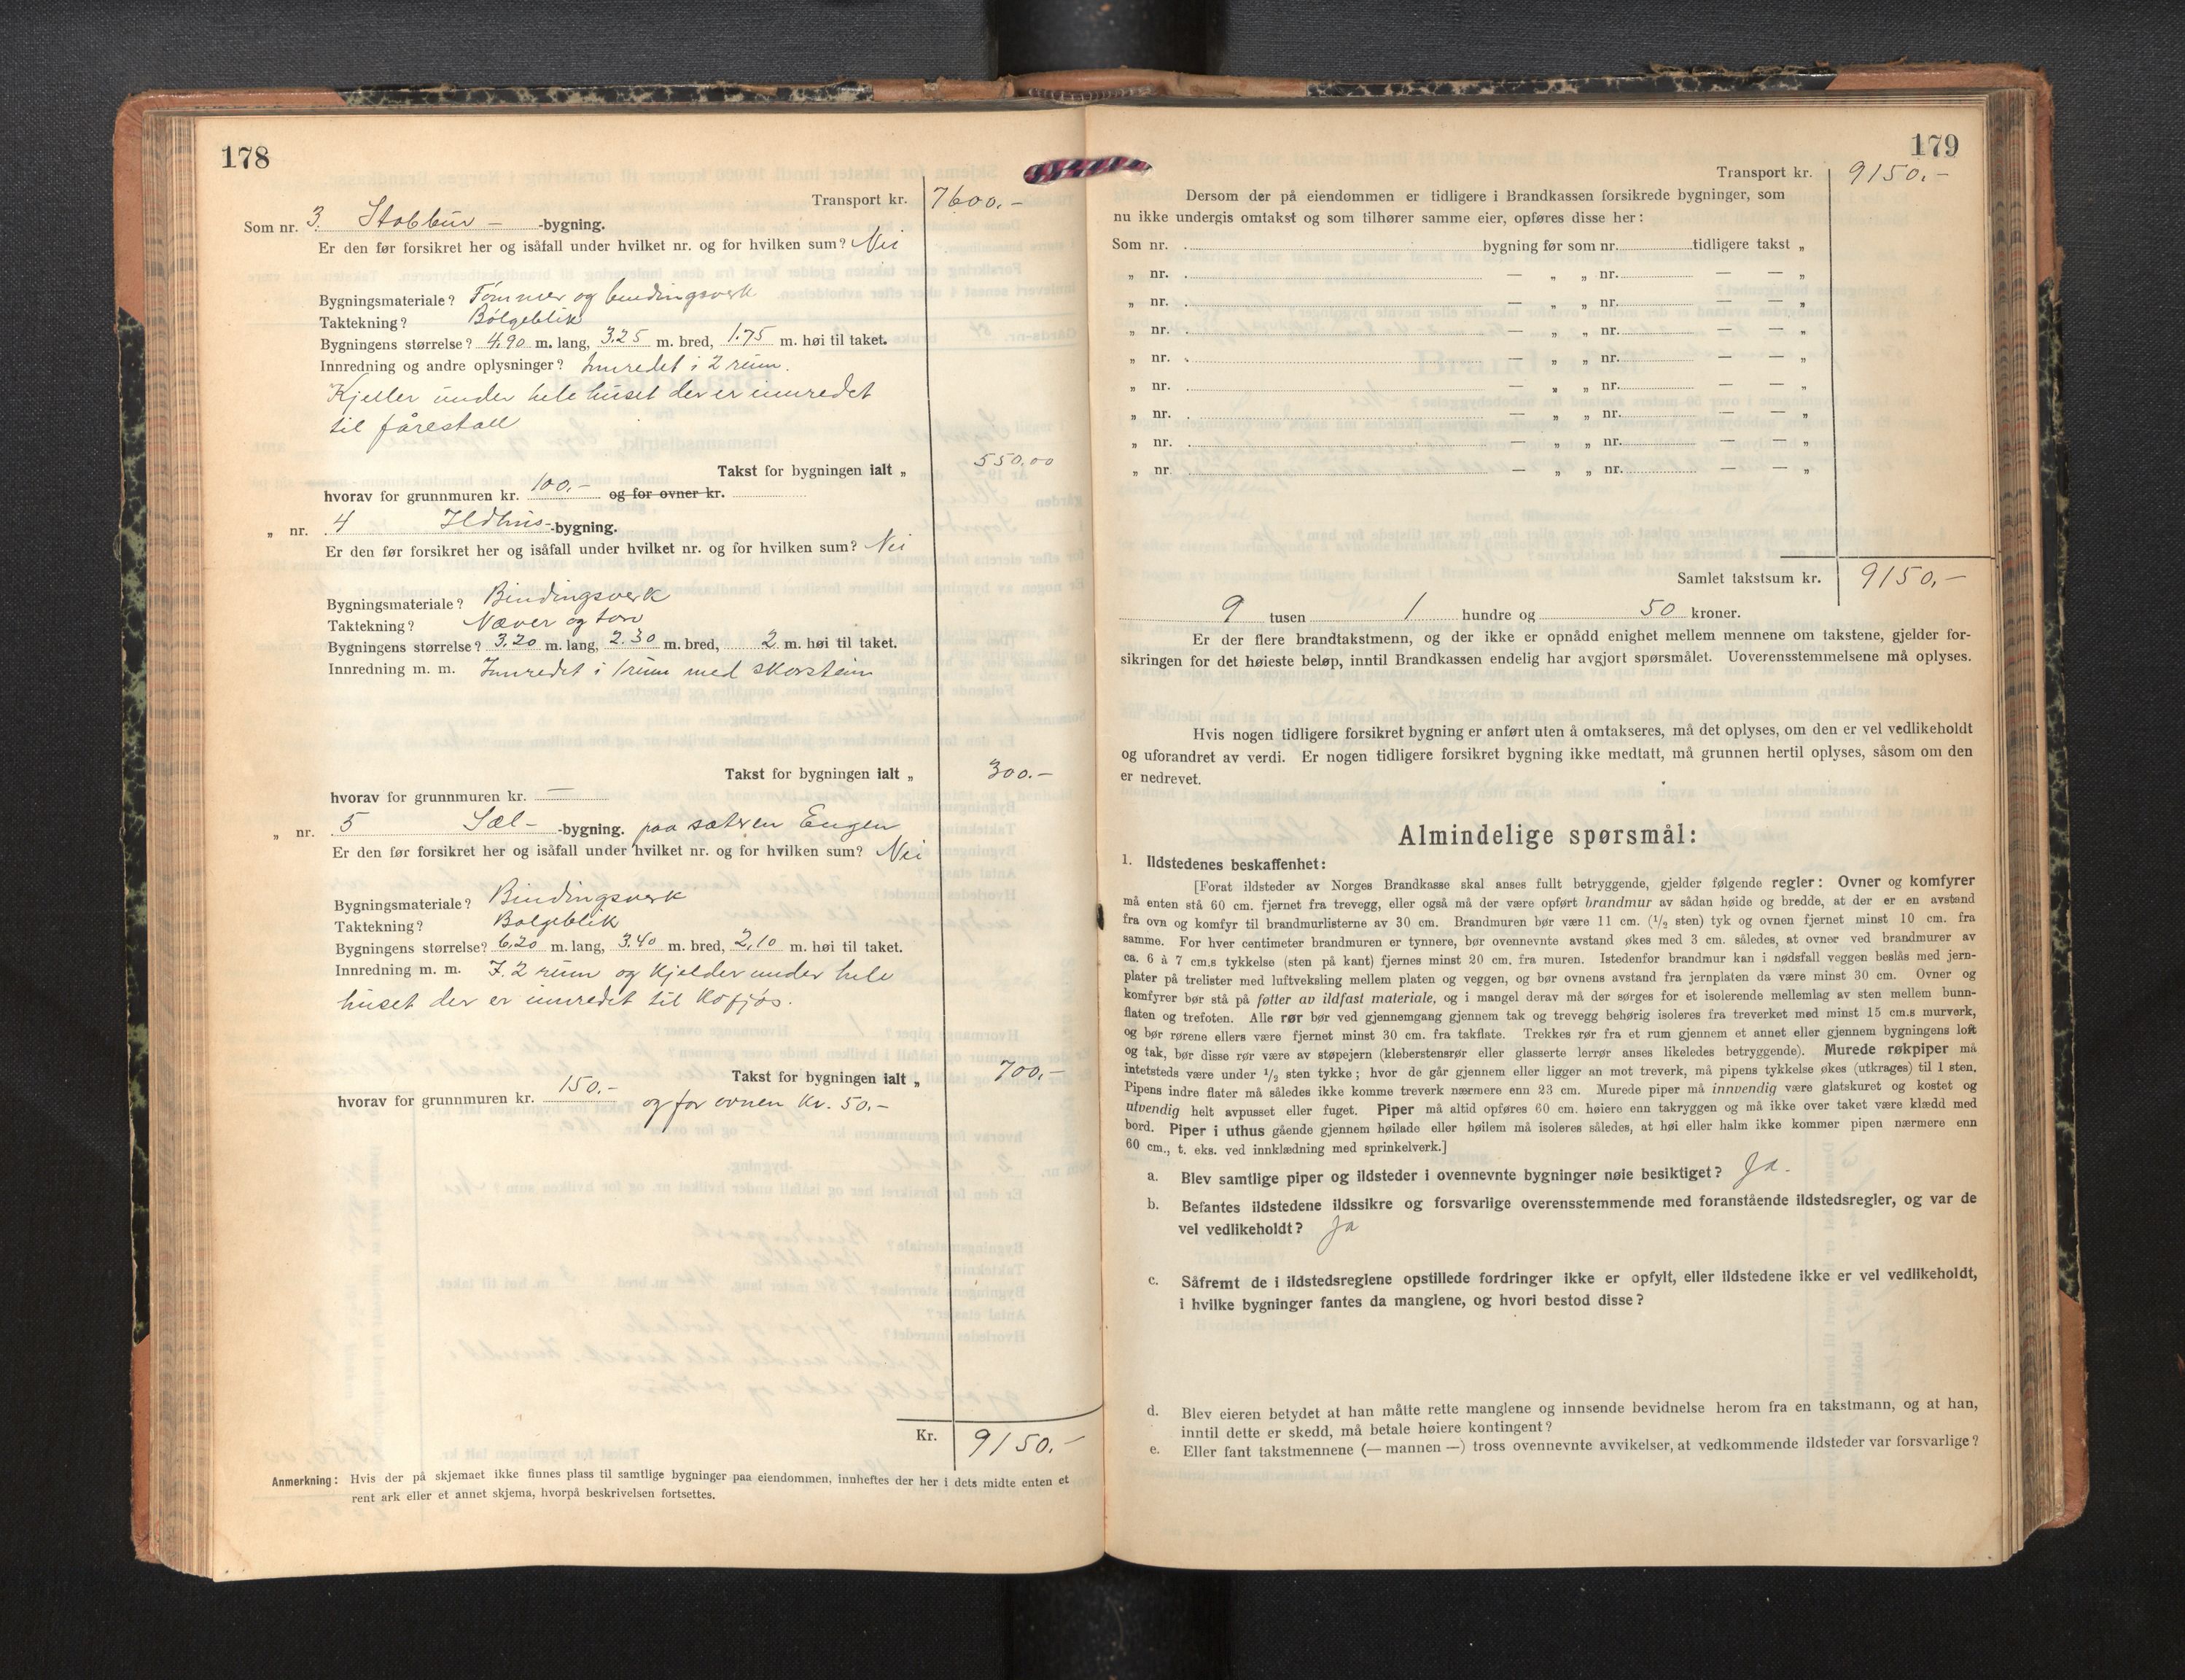 178
Transport kr. 7600.-
Som nr. 3. Stabbur - -bygning.
Er den før forsikret her og isåfall under hvilket nr. og for hvilken sum? Nei
Bygningsmateriale? Tømmer og bindingsverk
Taktekning? Bølgeblik
Bygningens størrelse? 4.90 m. lang, 3.25 m. bred, 1.75 m. høi til taket.
Innredning og andre oplysninger? Innredet i 2 rum.
Kjeller under hele huset der er innredet
til fårestall
Takst for bygningen ialt „ 550,00
hvorav for grunnmuren kr. 100.- og for ovner kr.
„ nr. 4 Ildhus- -bygning.
Er den før forsikret her og isåfall under hvilket nr. og for hvilken sum? Nei
Bygningsmateriale? Bindingsverk
Taktekning? Næver og torv
Bygningens størrelse? 3.20 m. lang, 2.30 m. bred, 2 m. høi til taket.
Innredning m. m. Innredet i 1 rum med skorstein
Takst for bygningen ialt „ 300.-
hvorav for grunnmuren kr. —
„ nr. 5 Sæl- -bygning. paa sæteren Eugen
Er den før forsikret her og isåfall under hvilket nr. og for hvilken sum? Nei
Bygningsmateriale? Bindingsverk
Taktekning? Bølgeblik
Bygningens størrelse? 6.20 m. lang, 3.40 m. bred, 2,10 m. høi til taket.
Innredning m. m. I. 2 rum og kjelder under hele
huset der er innredet til kofjøs.
Takst for bygningen ialt „ 700.-
hvorav for grunnmuren kr. 150.- og for ovnen kr. 50.-
Kr. 9150.-
Anmerkning: Hvis der på skjemaet ikke finnes plass til samtlige bygninger paa eiendommen, innheftes der her i dets midte enten et
rent ark eller et annet skjema, hvorpå beskrivelsen fortsettes.
179
Transport kr. 9150.-
Dersom der på eiendommen er tidligere i Brandkassen forsikrede bygninger, som
nu ikke undergis omtakst og som tilhører samme eier, opføres disse her:
Som nr. bygning før som nr. tidligere takst „
„ nr. — „ „ nr. — — „
„ nr. — „ „ nr. — — „
„ nr. — „ „ nr. — — „
„ nr. — „ „ nr. — — „
„ nr. — „ „ nr. — — „
„ nr. — „ „ nr. — — „
„ nr. — „ „ nr. — — „
„ nr. — „ „ nr. — — „
Samlet takstsum kr. 9150.-
9 tusen 1 hundre og 50 kroner.
Er der flere brandtakstmenn, og der ikke er opnådd enighet mellem mennene om takstene, gjelder for-
sikringen for det høieste beløp, inntil Brandkassen endelig har avgjort spørsmålet. Uoverensstemmelsene må oplyses.
Hvis nogen tidligere forsikret bygning er anført uten å omtakseres, må det oplyses, om den er vel vedlikeholdt
og uforandret av verdi. Er nogen tidligere forsikret bygning ikke medtatt, må grunnen hertil oplyses, såsom om den
er nedrevet.
Almindelige spørsmål:
1. Ildstedenes beskaffenhet:
[Forat ildsteder av Norges Brandkasse skal anses fullt betryggende, gjelder følgende regler: Ovner og komfyrer
må enten stå 60 cm. fjernet fra trevegg, eller også må der være opført brandmur av sådan høide og bredde, at der er en avstand
fra ovn og komfyr til brandmurlisterne av 30 cm. Brandmuren bør være 11 cm. (1/2 sten) tyk og ovnen fjernet minst 10 cm. fra
samme. For hver centimeter brandmuren er tynnere, bør ovennevnte avstand økes med 3 cm. således, at ovner ved brandmurer av
ca. 6 à 7 cm.s tykkelse (sten på kant) fjernes minst 20 cm. fra muren. Istedenfor brandmur kan i nødsfall veggen beslås med jern-
plater på trelister med luftveksling mellem platen og veggen, og bør ovnens avstand fra jernplaten da være minst 30 cm. Ovner og
komfyrer bør stå på føtter av ildfast materiale, og i mangel derav må der sørges for et isolerende mellemlag av sten mellem bunn-
flaten og trefoten. Alle rør bør ved gjennemgang gjennem tak og trevegg behørig isoleres fra treverket med minst 15 cm.s murverk,
og bør rørene ellers være fjernet minst 30 cm. fra takflate. Trekkes rør fra et rum gjennem et annet eller gjennem bygningens loft
og tak, bør disse rør være av støpejern (kleberstensrør eller glasserte lerrør anses likeledes betryggende). Murede røkpiper må
intetsteds være under 1/2 sten tykke; hvor de går gjennem eller ligger an mot treverk, må pipens tykkelse økes (utkrages) til 1 sten.
Pipens indre flater må således ikke komme treverk nærmere enn 23 cm. Murede piper må innvendig være glatskuret og kostet og
utvendig helt avpusset eller fuget. Piper må altid opføres 60 cm. høiere enn takryggen og må ikke over taket være klædd med
bord. Piper i uthus gående gjennem høilade eller høilem må isoleres således, at høi eller halm ikke kommer pipen nærmere enn
60 cm., t. eks. ved innklædning med sprinkelverk.]
a. Blev samtlige piper og ildsteder i ovennevnte bygninger nøie besiktiget? Ja.
b. Befantes ildstedene ildssikre og forsvarlige overensstemmende med foranstående ildstedsregler, og var de
vel vedlikeholdt? Ja
c. Såfremt de i ildstedsreglene opstillede fordringer ikke er opfylt, eller ildstedene ikke er vel vedlikeholdt,
i hvilke bygninger fantes da manglene, og hvori bestod disse?
d. Blev eieren betydet at han måtte rette manglene og innsende bevidnelse herom fra en takstmann, og at han,
inntil dette er skedd, må betale høiere kontingent?
e. Eller fant takstmennene (— mannen —) tross ovennevnte avvikelser, at vedkommende ildsteder var forsvarlige?